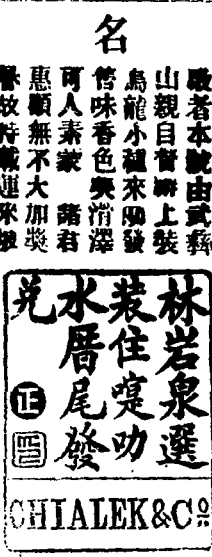 名
啟者本號由武彝
山親自督辦上裝
烏龍小種來叻發
味香色清澤
可人素蒙 諸君
惠顧無不大加獎
譽故特載運來坡
林岩泉選
装住叻
水厝尾發
兑正
CHIALEK&Cº